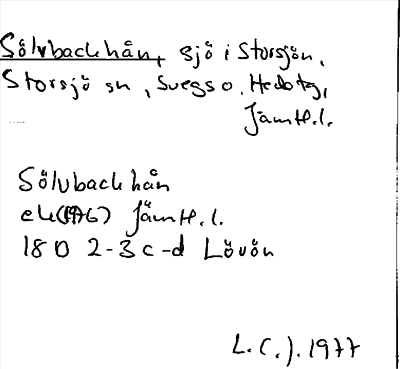 Sölvbackhån, sjö i Storsjön,
Storsjö sn, Svegs o. Hedo tg,
Jämtl.l.
Sölvbackhån
ek(1976) Jämtl.l.
18 D 2-3 c-d Lövön
L.C.J. 1977